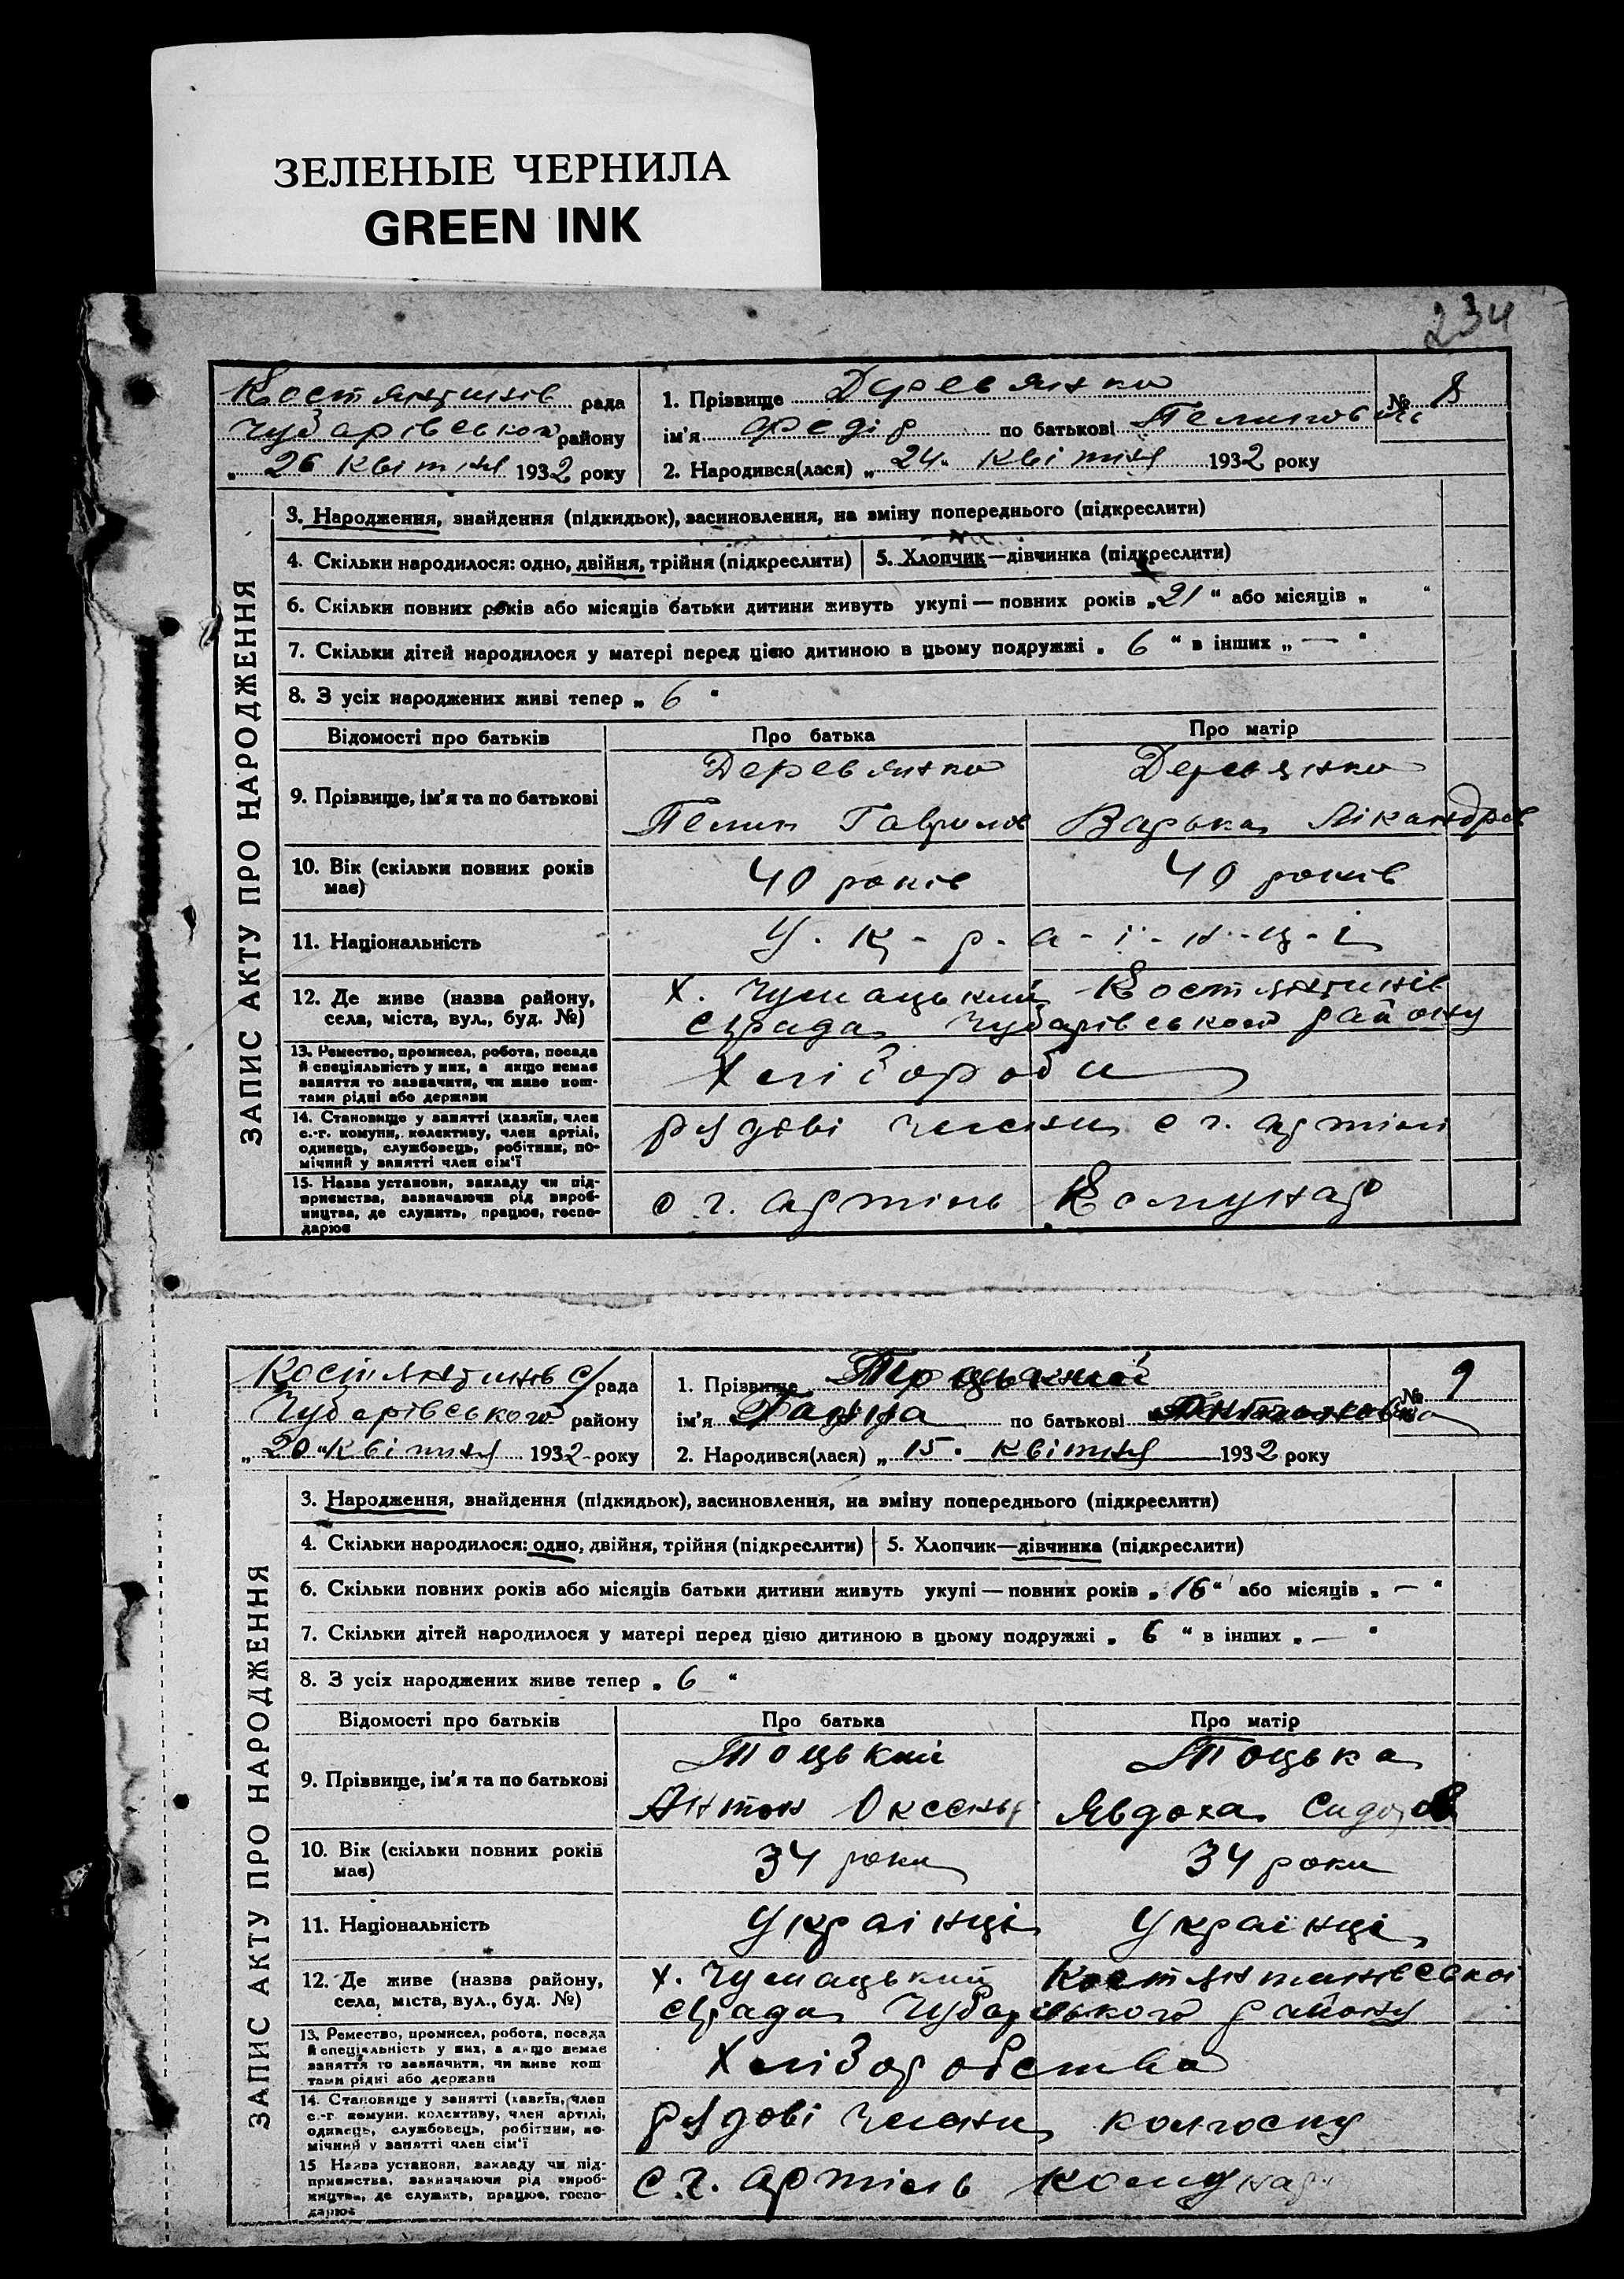 ЗЕЛЕНЫЕ ЧЕРНИЛА
GREEN INK
234
Костянтинів рада
Чубарівського району
„ 26 квітня 1932 року
1. Прізвище Деревянко
№ 8
ім'я Федір по батькові
2. Народився(лася) „ 24 " квітня 1932 року
ЗАПИС АКТУ ПРО НАРОДЖЕННЯ
3. Народження, знайдення (підкидьок), засиновлення, на зміну попереднього (підкреслити)
4. Скільки народилося: одно, двійня, трійня (підкреслити)
5. Хлопчик—дівчинка (підкреслити)
6. Скільки повних років або місяців батьки дитини живуть укупі — повних років „ 21 “ або місяців „ “
7. Скільки дітей народилося у матері перед цією дитиною в цьому подружжі „ 6 “ в інших „ — “
8. З усіх народжених живі тепер „ 6 “
Відомості про батьків
Про батька
Про матір
9. Прізвище, ім'я та по батькові
Деревянко
Гаврилов
Деревянко
Варька Лікандров
10. Вік (скільки повних років
має)
40 років
40 років
11. Національність
У-к-р-а-ї-н-ц-і
12. Де живе (назва району,
села, міста, вул., буд. №)
х. Чумацький Костянтинів
с/рада Чубарівського району
13. Ремество, промисел, робота, посада
й спеціяльність у них, а якщо немає
заняття то зазначити, чи живе кош-
тами рідні або держави
Хлібороби
14. Становище у занятті (хазяїн, член
с.-г. комуни, колективу, член артілі,
одинець, службовець, робітник, по-
мічний у занятті член сім'ї
рядові члени с г. артілі
15. Назва установи, закладу чи під-
приємства, зазначаючи рід вироб-
ництва, де служить, працює, госпо-
дарює
с. г. артіль Комунар
Костянтинів с/рада
Чубарівського району
„ 20 “ квітня 1932 року
1. Прізвище
№ 9
ім'я Ганна по батькові Антоновна
2. Народився(лася) „ 15 . квітня 1932 року
ЗАПИС АКТУ ПРО НАРОДЖЕННЯ
3. Народження, знайдення (підкидьок), засиновлення, на зміну попереднього (підкреслити)
4. Скільки народилося: одно, двійня, трійня (підкреслити)
5. Хлопчик—дівчинка (підкреслити)
6. Скільки повних років або місяців батьки дитини живуть укупі — повних років „ 16 “ або місяців „ — “
7. Скільки дітей народилося у матері перед цією дитиною в цьому подружжі „ 6 “ в інших „ — “
8. З усіх народжених живе тепер „ 6 “
Відомості про батьків
Про батька
Про матір
9. Прізвище, ім'я та по батькові
Тоцький
Антон
Тоцька
Явдоха Сидоров
10. Вік (скільки повних років
має)
34 роки
34 роки
11. Національність
Українці
Українці
12. Де живе (назва району,
села, міста, вул., буд. №)
х. Чумацький Костянтинівської
с/рада Чубарівського району
13. Ремество, промисел, робота, посада
й спеціяльність у них, а якщо немає
заняття то зазначити, чи живе кош
тами рідні або держави
Хліборобство
14. Становище у занятті (хазяїн, член
с.-г. комуни, колективу, член артілі,
одинець, службовець, робітник, по-
мічний у занятті член сім'ї
рядові члени колгоспу
15 Назва установи, закладу чи під-
приємства, зазначаючи рід вироб-
ництва, де служить, працює, госпо-
дарює
с. г. артіль комунар